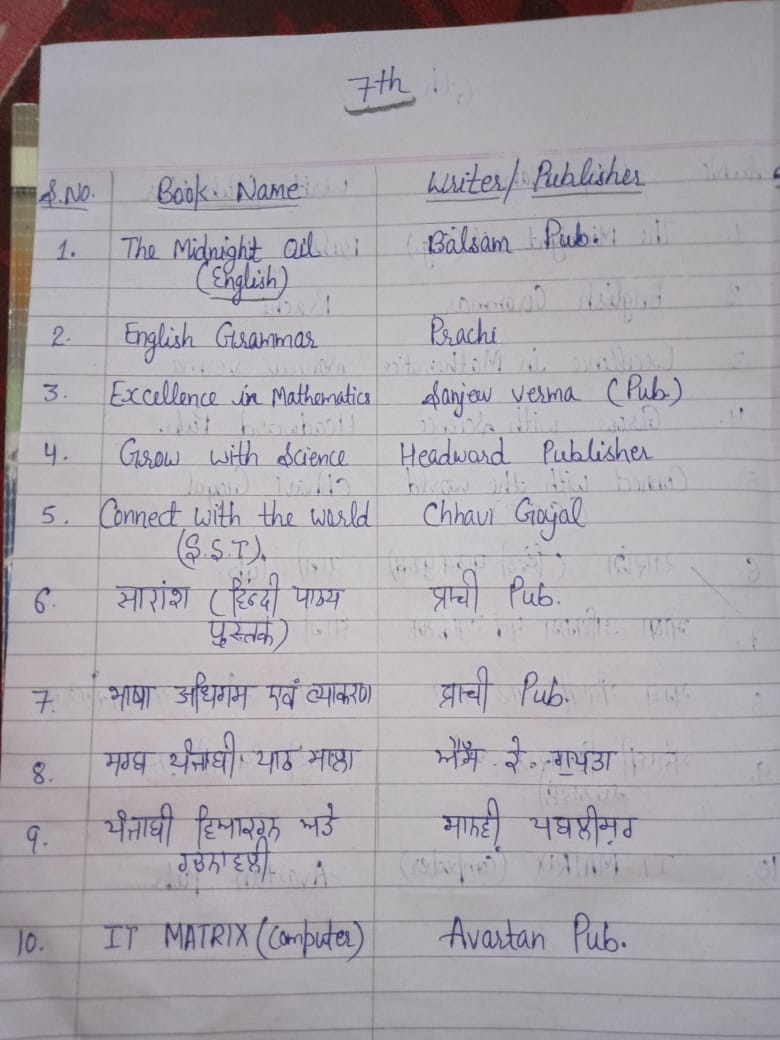 7th
S.No. Book Name Writer/Publisher
1. The Midnight Oil Balsam Pub.
(English)
2. English Grammar Prachi
3. Excellence in Mathematics Sanjeev Verma (Pub.)
4. Grow with Science Headward Publisher
5. Connect with the world Chhavi Goyal
(S.S.T).
6. सारांश (हिंन्दी पाठ्य प्राची Pub.
पुस्तक)
7. भाषा अधिगम एवं व्याकरण प्राची Pub.
8. ਪੰਜਾਬੀ ਪਾਠ ਮਾਲਾ ਐਮ. ਕੇ. ਗੁਪਤਾ
9. ਪੰਜਾਬੀ ਵਿਆਕਰਨ ਅਤੇ ਪਬਲੀਸ਼ਰ
ਰਚਨਾਵਲੀ
10. IT MATRIX (Computer) Avartan Pub.